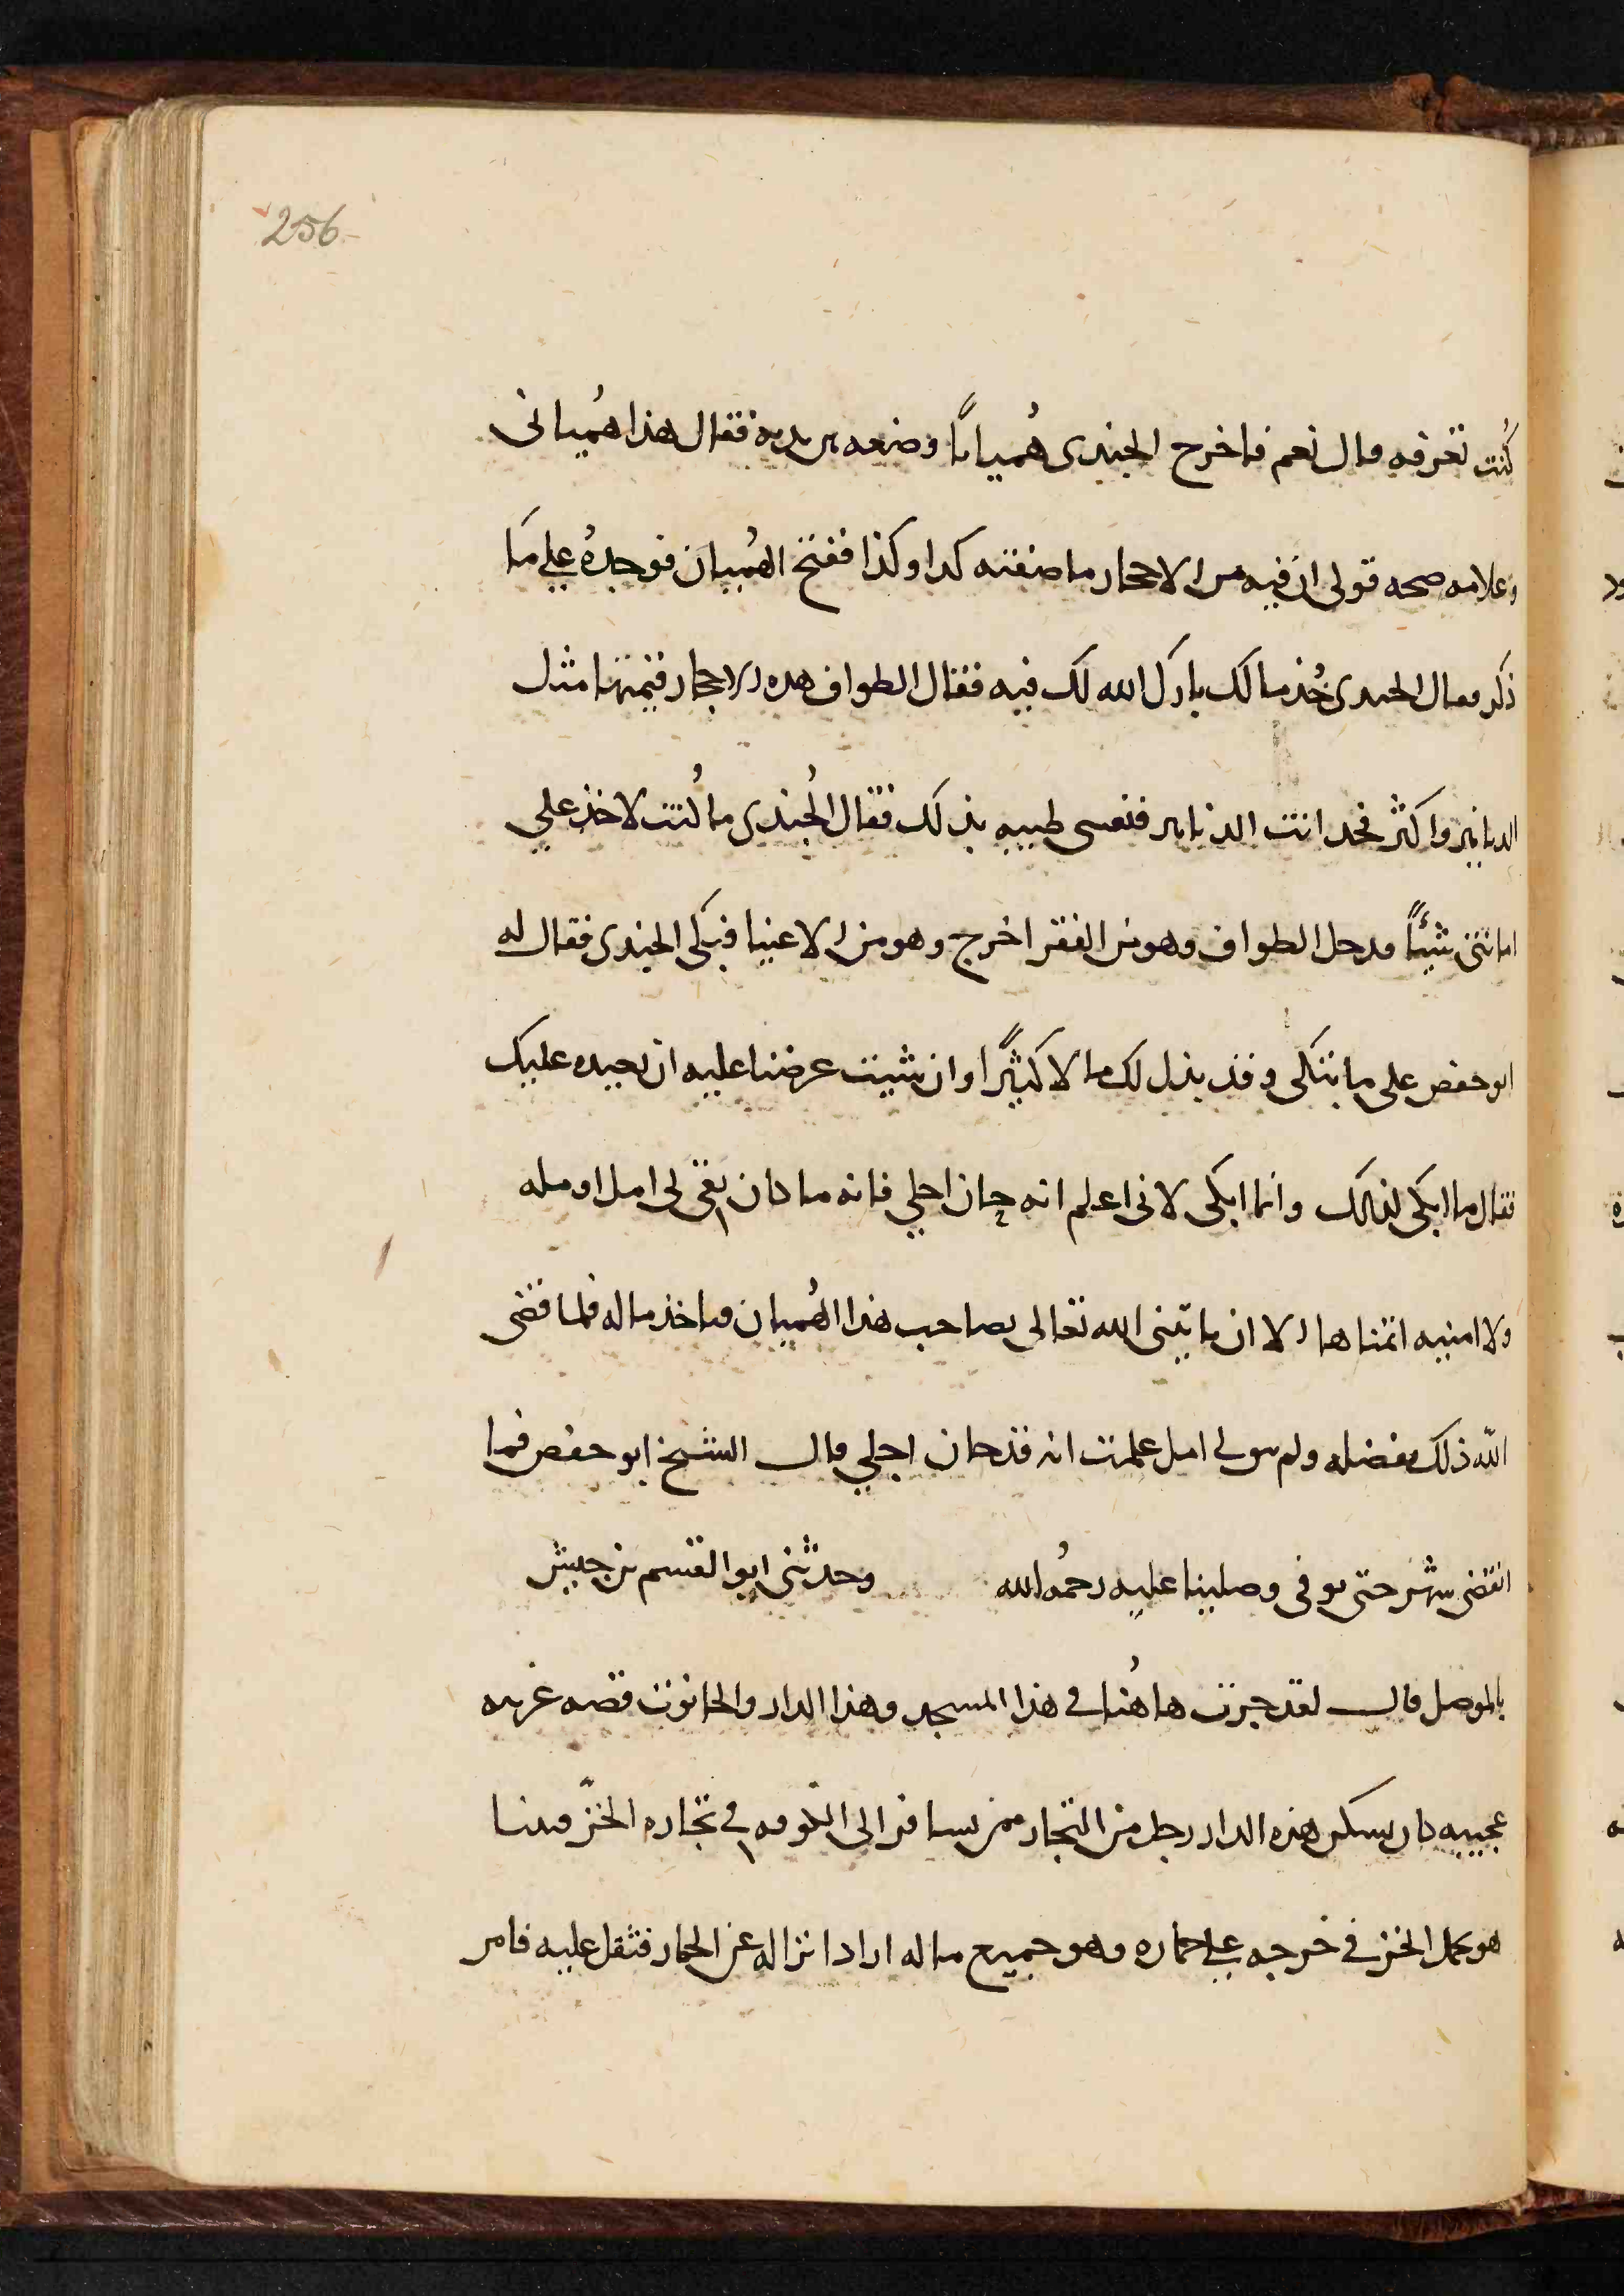 256
كُنت تعرفه قال نعم فاخرج الجندى هُمياناً وضعه بىن يديه فقال هذا هُميانى
وعلامه صحه قولى ان فيه من الاحجار ما صفته كدا وكذا ففتح الهُميان فوجدهُ على ما
ذكر فقال الجندى خُذ مالك بارك الله لك فيه فقال الطواف هده الاحجار قيمتها مثل
الدنانير واكثر فخد انت الدنانير فنفسى طيبه بذلك فقال الجُندى ما كُنت لاخذ على
امانتى شيئاً فدخل الطواف وهو من الفقرا خرج وهو من الاغنيا فبكى الجندى فقال له
ابو حفص على ما تبكى وقد بذل لك مالا كثيرًا وان شيت عرضنا عليه ان يعيده عليك
فقال ما ابكى لذلك وانما ابكى لانى اعلم انه حان اجلي فانه ما كان بقى لى امل اومله
ولا امنيه اتمناها الا ان ياتينى الله تعالى بصاحب هذا الهُميان فياخذ ماله فلما قضى
الله ذلك بفضله ولم يبق لى امل علمت انه قد حان اجلي قال الشيخ ابو حفص فما
انقضى شهر حتى توفى وصلينا عليه رحمُه الله وحدثنى ابو القسم بن حبيش
بالموصل قال لقد جرت هاهُنا فى هذا المسجد وهذا الدار والحانوت قصه غريبه
عجيبه كان يسكن هذه الدار رجل من التجار ممن يسافر الى الكوفه فى تجاره الخزّ فبينا
هو يحمل الخز فى خرجه على حماره وهو جميع ماله اراد انزاله عن الحمار فثقل عليه فامر